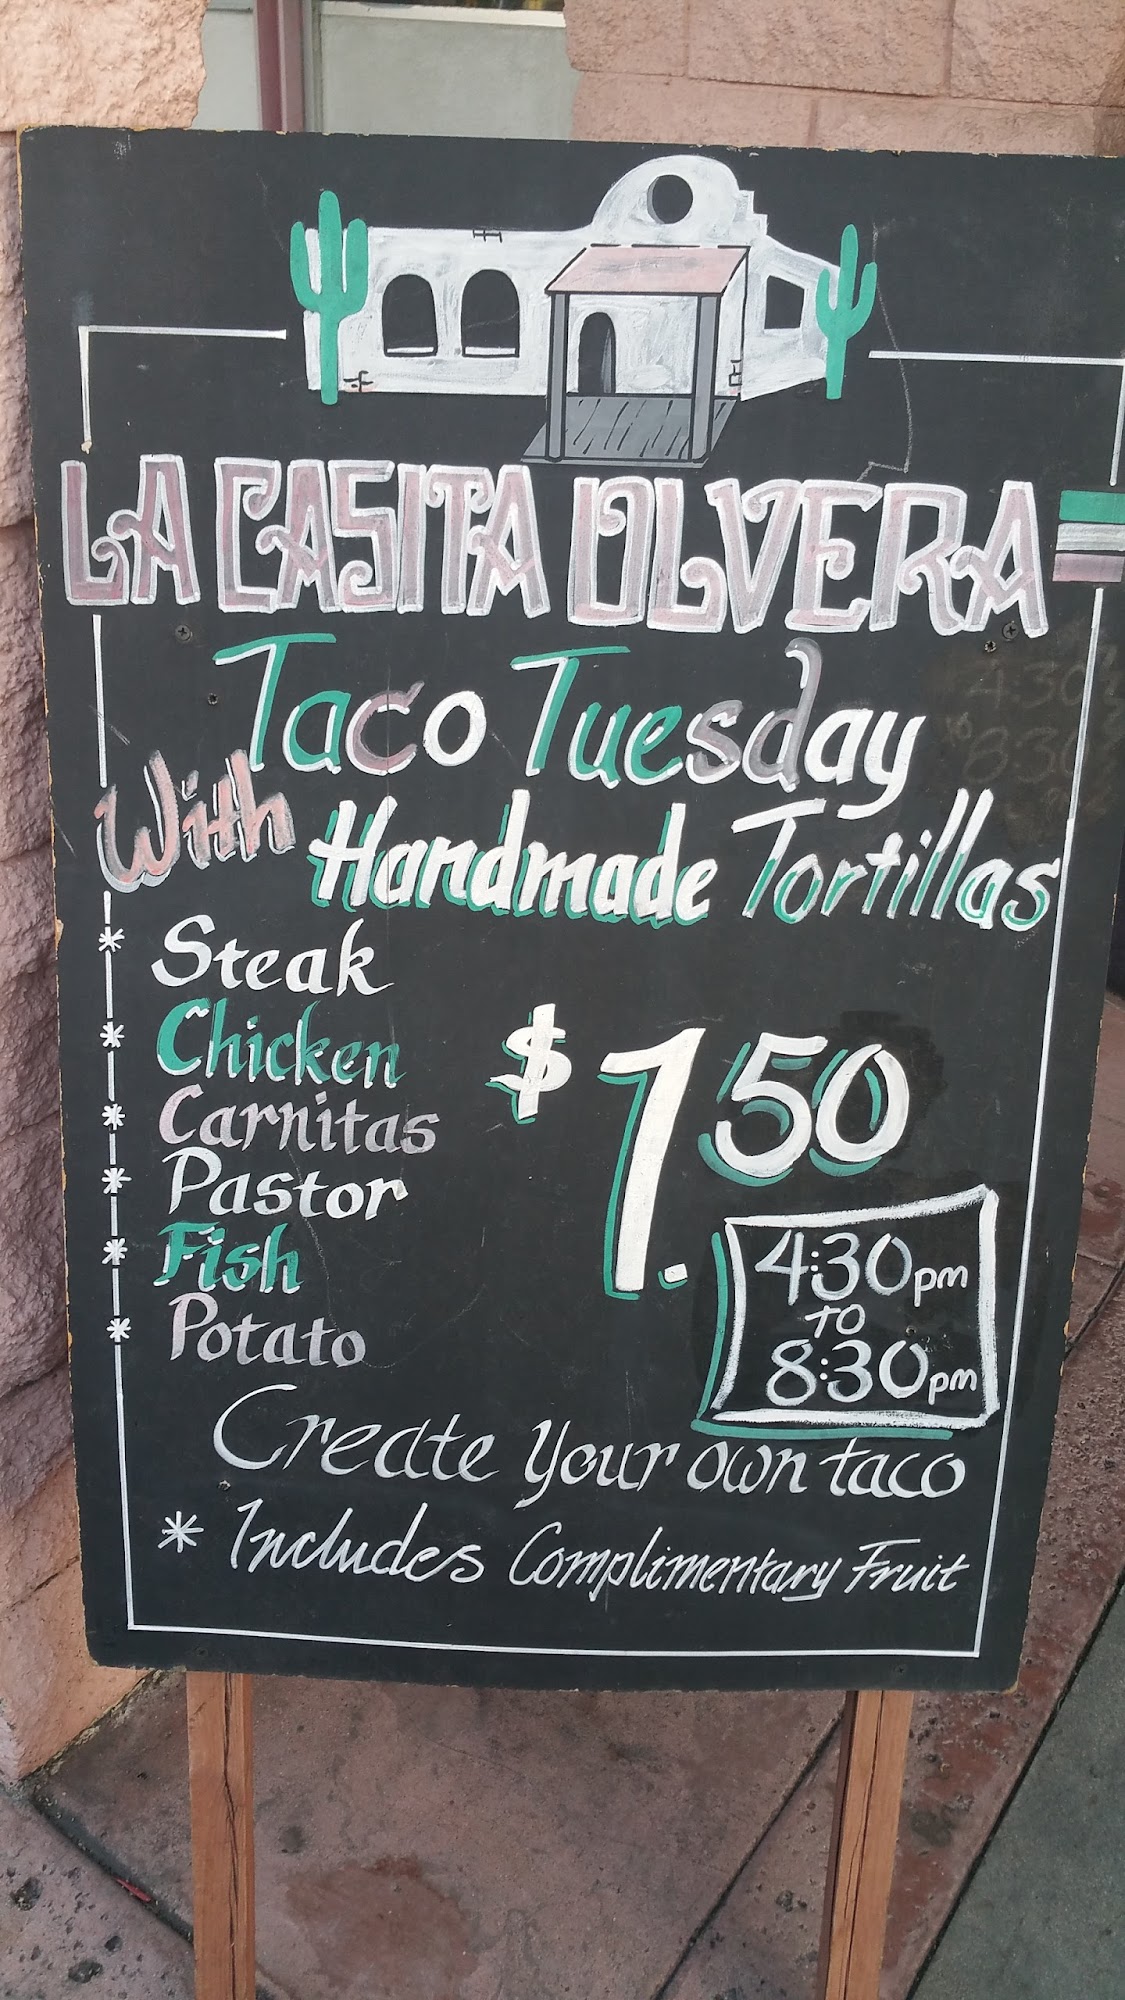 LA CASITA OLVERA
Taco Tuesday
With Handmade Tortillas
* Steak
* Chicken
* Carnitas
* Pastor
* Fish
* Potato
$1.50
4:30pm
TO
8:30pm
Create your own taco
* Includes Complimentary Fruit
4:30
to
8:30